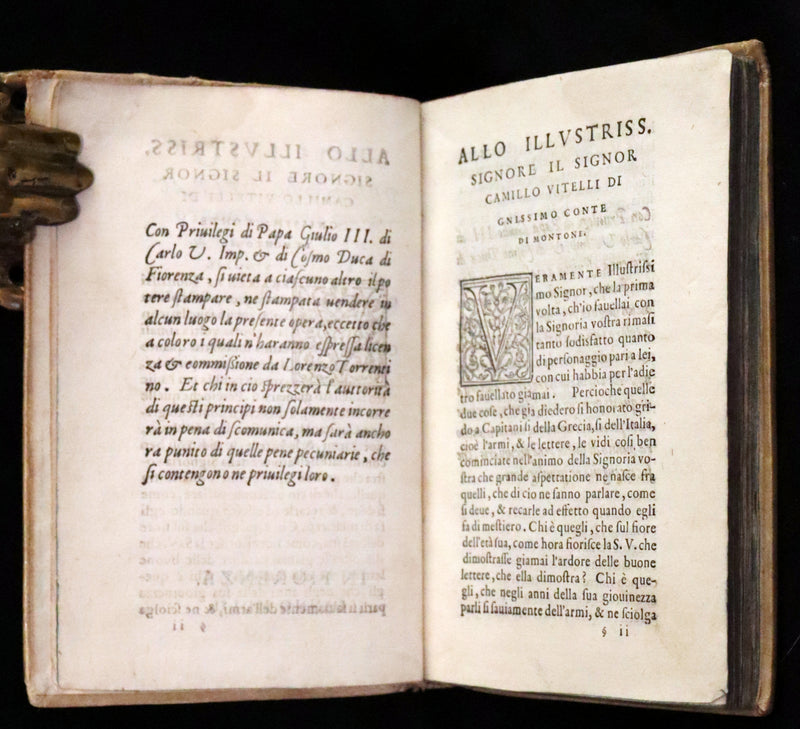 Con Priuilegi di Papa Giulio III. di
Carlo V. Imp. & di Cosmo Duca di
Fiorenza, si uieta a ciascuno altro il po
tere stampare, ne stampata uendere in
alcun luogo la presente opera, eccetto che
a coloro i quali n'haranno espressa licen
za & commissione da Lorenzo Torrenti
no. Et chi in cio sprezzerà l'auttorità
di questi principi non solamente incorre
rà in pena di scomunica, ma sarà ancho
ra punito di quelle pene pecuniarie, che
si contengono ne priuilegi loro.
ALLO ILLVSTRISS.
SIGNORE IL SIGNOR
CAMILLO VITELLI DI
GNISSIMO CONTE
DI MONTONE.
VERAMENTE Illustrissi
mo Signor, che la prima
volta, ch'io fauellai con
la Signoria vostra rimasi
tanto sodisfatto quanto
di personaggio pari a lei,
con cui habbia per l'adie
tro fauellato giamai. Percioche quelle
due cose, che gia diedero sì honorato gri-
do a Capitani sì della Grecia, sì dell'Italia,
cioè l'armi, & le lettere, le vidi così ben
cominciate nell'animo della Signoria vo-
stra che grande aspettatione ne nasce fra
quelli, che di cio ne fanno parlare, come
si deue, & recarle ad effetto quando egli
fa di mestiero. Chi è quegli, che sul fiore
dell'età sua, come hora fiorisce la S. V. che
dimostrasse giamai l'ardore delle buone
lettere, che ella dimostra? Chi è que-
gli, che negli anni della sua giouinezza
parli sì sauiamente dell'armi, & ne sciolga
§ ii